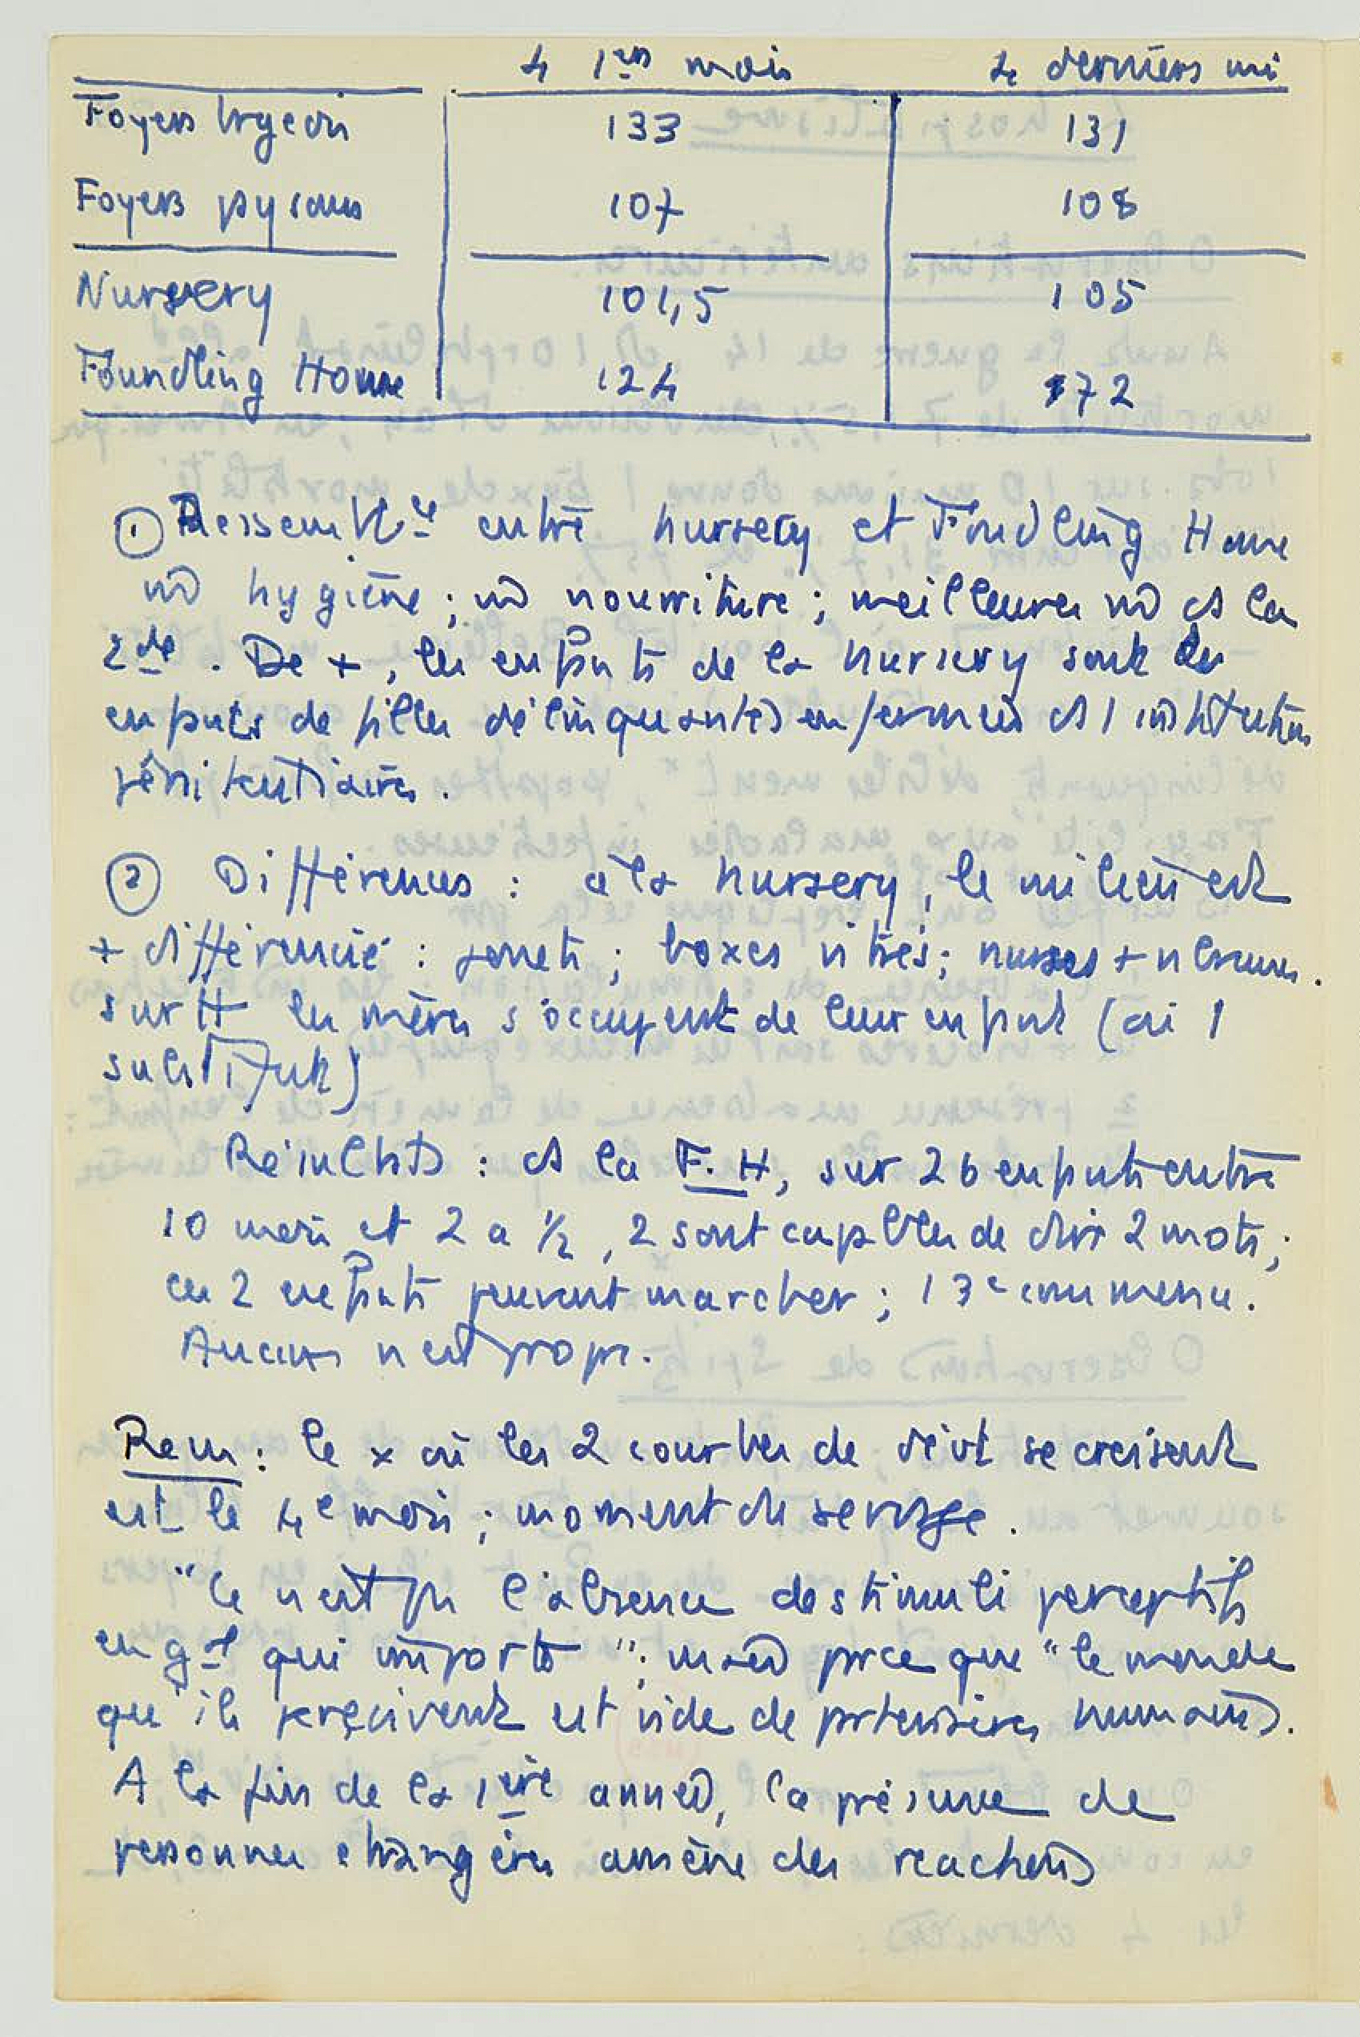 4 1ers mois 4 derniers mi
Foyers brgeois 133 131
Foyers pysans 107 108
Nursery 101,5 105
Foundling Home 124 72
① Ressemblces entre nursery et Foundling Home
m̄ hygiène ; m̄ nourriture ; meilleures m̄ ds la
2de. De +, les enfants de la nursery sont des
enfants de filles délinquantes enfermées ds 1 institution
pénitentiaire.
② Différences : à la nursery, le milieu est
+ différencié : jouets ; boxes vitrés ; nurses + nbreuses.
surtt les mères s'occupent de leur enfant (ou 1
substitut)
Résultats : ds la F.H, sur 26 enfants entre
10 mois et 2 a ½, 2 sont capbles de dire 2 mots ;
ces 2 enfants peuvent marcher ; 1 3e commence.
Aucun n'est propre.
Rem : le x où les 2 courbes de dévt se croisent
est le 4e mois ; moment du sevrage.
"Ce n'est pas l'absence de stimuli perceptifs
en gal qui importe" ; mais parce que "le monde
qu'ils perçoivent est vide de partenaires humains.
A la fin de la 1ère année, la présence de
personnes étrangères amène des réactions